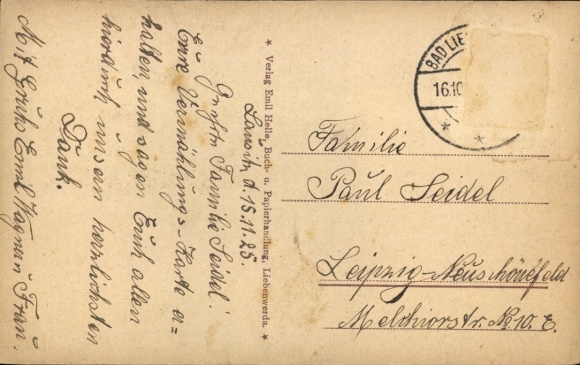 Lausitz, d. 15.11.25.
Geehrte Familie Seidel!
Eure Vermählungs-Karte er=
halten, und sagen Euch allen
hierdurch unsern herzlichsten
Dank.
Mit Gruß Emil Wagner u Frau.
* Verlag Emil Helle, Buch- u. Papierhandlung, Liebenwerda. *
BAD LIE
16.10
Familie
Paul Seidel
Leipzig-Neuschönefeld
Melchiorstr. No 10. E.